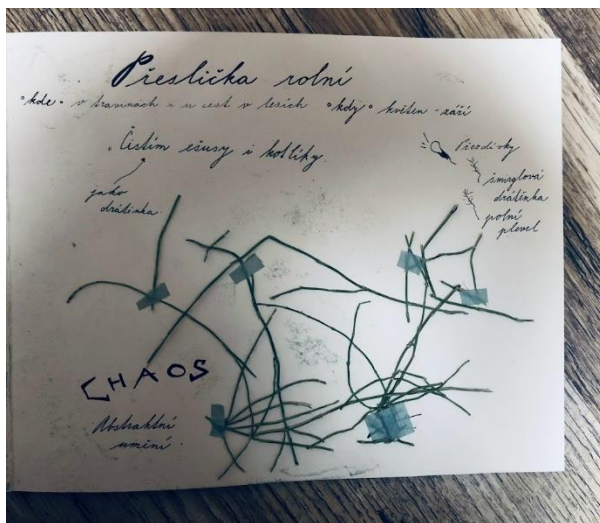 Přeslička rolní
"kde" v travinách i u cest v lesích "kdy" květen - září
Čistím ešusy i kotlíky.
jako
drátěnka.
Přezdívky
šmirglová
drátěnka
polní
plevel
CHAOS
Abstraktní
umění.